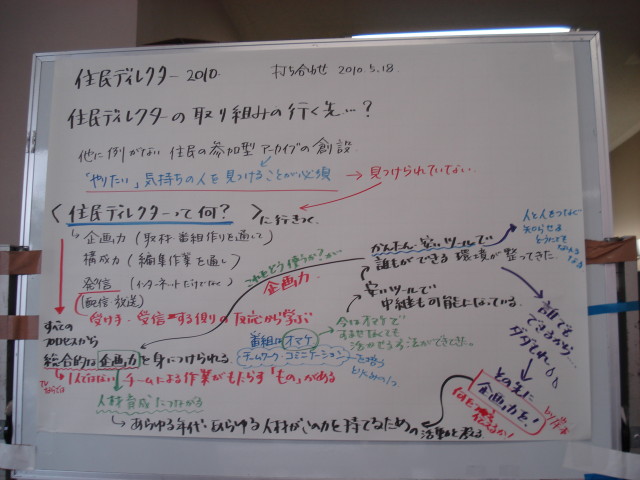 住民ディレクター 2010. 打ち合わせ 2010.5.18.
住民ディレクターの取り組みの行く先…?
他に例がない 住民の参加型 アーカイブの創設
「やりたい」気持ちの人を見つけることが必須 → 見つけられていない
〈住民ディレクターって何?〉に行きつく。
企画力 (取材・番組作りを通して)
構成力 (編集作業を通し)
発信 (インターネットだけでなく)
(配信・放送)
受け手・受信する側の反応から学ぶ
すべての
プロセスから
総合的な企画力を身につけられる
1人ではない チームによる作業がもたらす「もの」がある
人材育成につながる
あらゆる年代・あらゆる人材がこの力を持てるための活動を考える
これをどう使うか?が
企画力
かんたん・安いツールで
誰もができる環境が整ってきた。
安いツールで
中継も可能になっている。
人と人をつなぐ
知らせる
番組はオマケ
チームワーク・コミュニケーションを培う
今はオマケで
誰でも
できるから…
ダダもれ
その先に
企画力を!